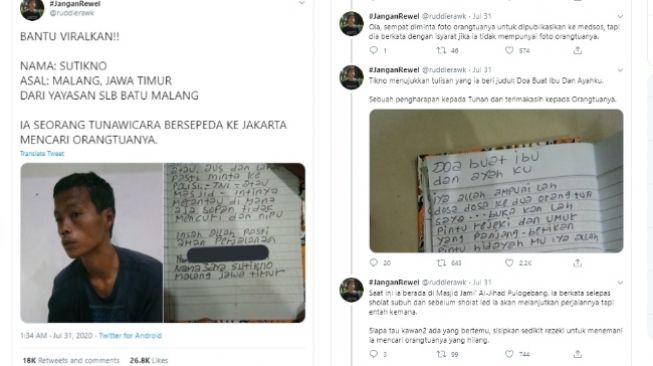 #JanganRewel
@ruddierawk
BANTU VIRALKAN!!
NAMA: SUTIKNO
ASAL: MALANG, JAWA TIMUR
DARI YAYASAN SLB BATU MALANG
IA SEORANG TUNAWICARA BERSEPEDA KE JAKARTA
MENCARI ORANGTUANYA.
Translate Tweet
atau, aus dan
Pasti minta ke
Polisi - TNI = atau
Masjid - intinya
merantau di mana
aja sopan tidak
mencuri dan nipu
insah allah Pasti
aman Perjalanan
Nama saya SUTIKNO
malang Jawa timur
1:34 AM - Jul 31, 2020 - Twitter for Android
18K Retweets and comments 26.8K Likes
#JanganRewel @ruddierawk - Jul 31
Ola, sempat diminta foto orangtuanya untuk dipublikasikan ke medsos, tapi
dia berkata dengan isyarat jika ia tidak mempunyai foto orangtuanya.
1 46 574
#JanganRewel @ruddierawk - Jul 31
Tikno menujukkan tulisan yang ia beri judul: Doa Buat Ibu Dan Ayahku.
Sebuah pengharapan kepada Tuhan dan terimakasih kepada Orangtuanya.
Doa buat ibu
dan ayah ku
iya allah ampuni lah
dosa dosa ke dua orang tua
saya... buka kan lah
Pintu rejeki dan umur
yang panjang - berikan
Pintu hidayah mu iya allah
20 661 2.2K
#JanganRewel @ruddierawk - Jul 31
Saat ini ia berada di Masjid Jami' Al-Jihad Pulogebang. Ia berkata selepas
sholat subuh dan sebelum sholat Ied Ia akan melanjutkan perjalannya tapi
entah kemana.
Siapa tau kawan2 ada yang bertemu, sisipkan sedikit rezeki untuk menemani
ia mencari orangtuanya yang hilang.
3 99 744